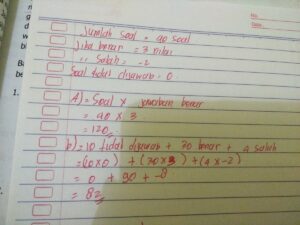 No.
Date.
Jumlah Soal = 40 Soal
Jika benar = 3 nilai
" Salah = -2
Soal tidak dijawab = 0
A) = Soal x jawaban benar
= 40 x 3
= 120
b) = 10 tidak dijawab + 30 benar + 4 salah
= (10 x 0) + (30 x 3) + (4 x -2)
= 0 + 90 + -8
= 82
1.